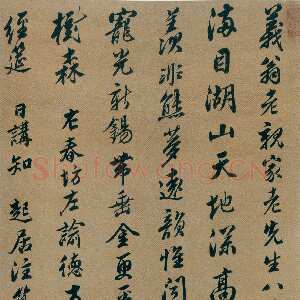 義翁老親家老先生八
满目湖山天地深高
羡非熊夢遠韻惟聞
寵光新錫帶垂金更
樹森 右春坊左諭德
經筵 日講知 起居注